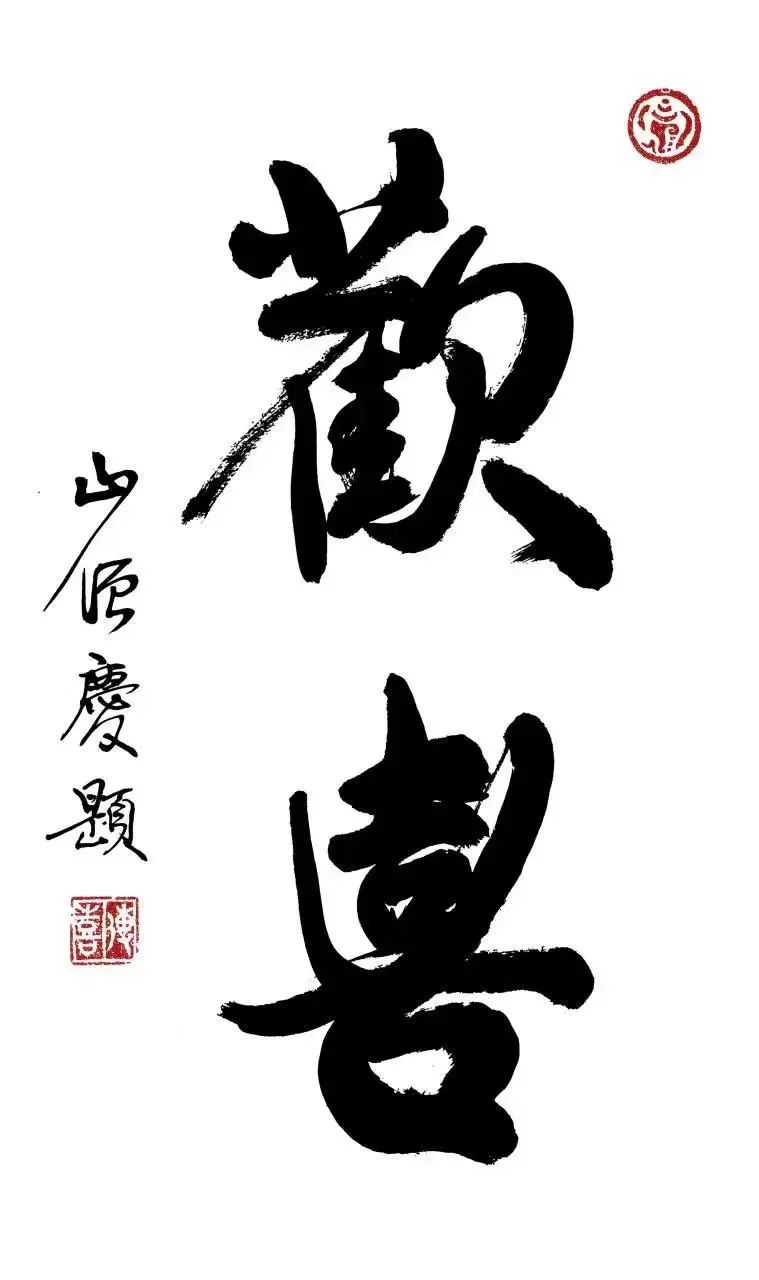 歡喜
山僧慶題